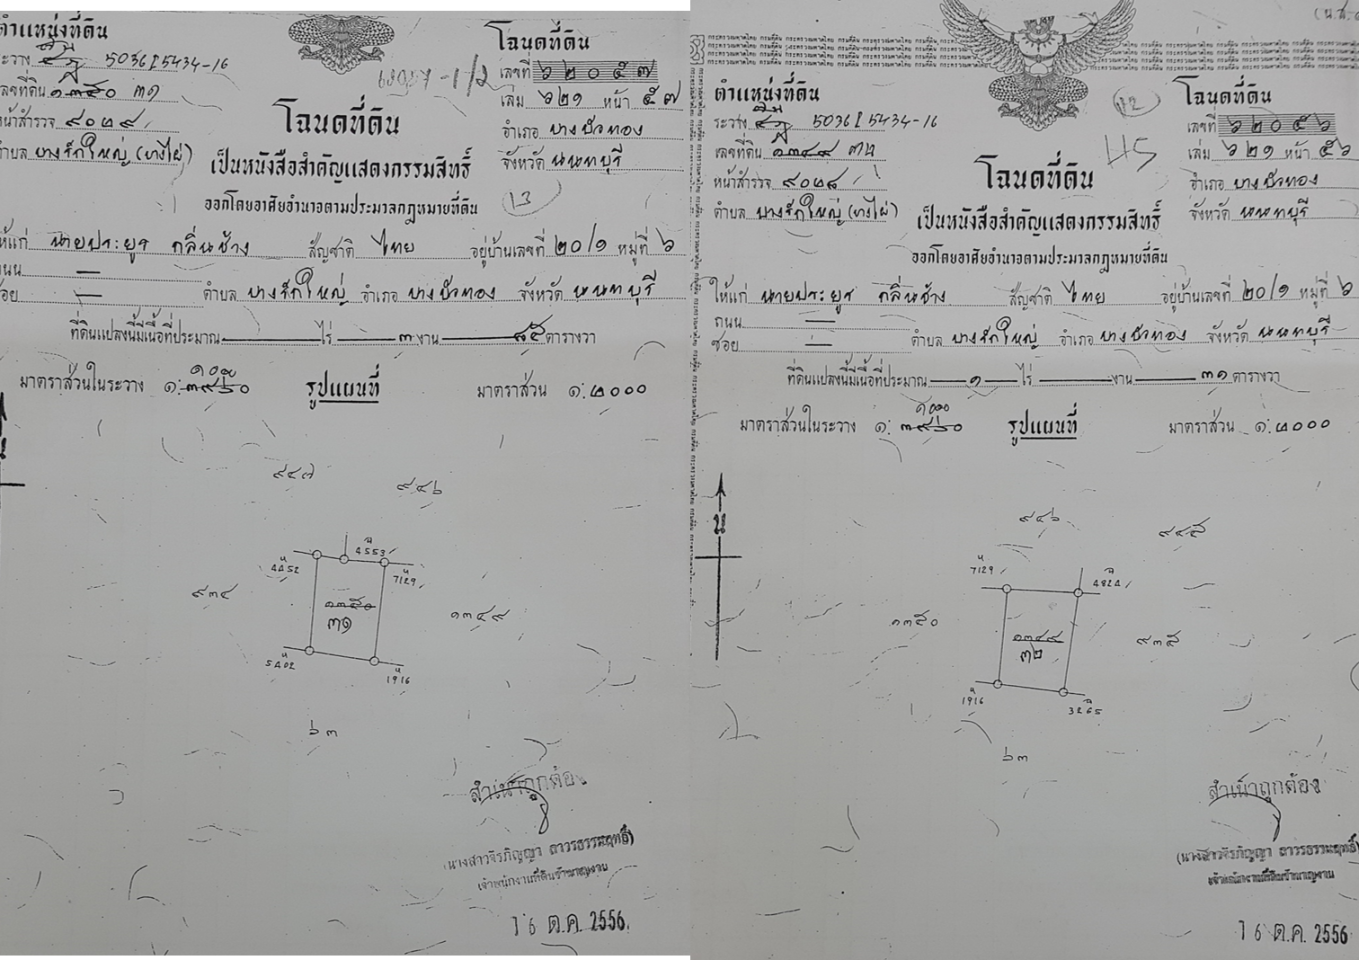 ตำแหน่งที่ดิน
ระวาง 5036 I 5434-16
เลขที่ดิน ๑๓๕๐ ๓๑
หน้าสำรวจ ๙๐๒๙
ตำบล บางรักใหญ่ (บางไผ่)
โฉนดที่ดิน
เลขที่ ๖๒๐๕๗
เล่ม ๖๒๑ หน้า ๕๗
อำเภอ บางบัวทอง
จังหวัด นนทบุรี
โฉนดที่ดิน
เป็นหนังสือสำคัญแสดงกรรมสิทธิ์
ออกโดยอาศัยอำนาจตามประมวลกฎหมายที่ดิน
13
ให้แก่ นายประยูร กลิ่นช้าง สัญชาติ ไทย อยู่บ้านเลขที่ ๒๐/๑ หมู่ที่ ๖
ถนน —
ซอย — ตำบล บางรักใหญ่ อำเภอ บางบัวทอง จังหวัด นนทบุรี
ที่ดินแปลงนี้มีเนื้อที่ประมาณ — ไร่ — ๓ งาน — ๘๕ ตารางวา
๑๐๐๐
มาตราส่วนในระวาง ๑:๓๙๖๐ รูปแผนที่ มาตราส่วน ๑:๒๐๐๐
๙๔๗
๙๔๖
4553
4452
7129
๙๓๔
๑๓๕๐
๓๑
๑๓๔๙
5402
1916
๖๓
สำเนาถูกต้อง
(นางสาวจิรภิญญา ถาวรธรรมฤทธิ์)
เจ้าพนักงานที่ดินชำนาญงาน
16 ต.ค. 2556
ตำแหน่งที่ดิน
ระวาง 5036 I 5434-16
เลขที่ดิน ๑๓๔๙ ๓๒
หน้าสำรวจ ๙๐๒๘
ตำบล บางรักใหญ่ (บางไผ่)
12
45
โฉนดที่ดิน
เลขที่ ๖๒๐๕๖
เล่ม ๖๒๑ หน้า ๕๖
อำเภอ บางบัวทอง
จังหวัด นนทบุรี
โฉนดที่ดิน
เป็นหนังสือสำคัญแสดงกรรมสิทธิ์
ออกโดยอาศัยอำนาจตามประมวลกฎหมายที่ดิน
ให้แก่ นายประยูร กลิ่นช้าง สัญชาติ ไทย อยู่บ้านเลขที่ ๒๐/๑ หมู่ที่ ๖
ถนน —
ซอย — ตำบล บางรักใหญ่ อำเภอ บางบัวทอง จังหวัด นนทบุรี
ที่ดินแปลงนี้มีเนื้อที่ประมาณ — ๑ — ไร่ — งาน — ๓๑ ตารางวา
๑๐๐๐
มาตราส่วนในระวาง ๑:๓๙๖๐ รูปแผนที่ มาตราส่วน ๑:๒๐๐๐
น
๙๔๖
๙๔๕
7129
4824
๑๓๕๐
๑๓๔๙
๓๒
๙๓๕
1916
3265
๖๓
สำเนาถูกต้อง
(นางสาวจิรภิญญา ถาวรธรรมฤทธิ์)
เจ้าพนักงานที่ดินชำนาญงาน
16 ต.ค. 2556